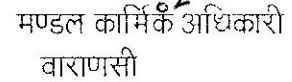 मण्डल कार्मिक अधिकारी
वाराणसी